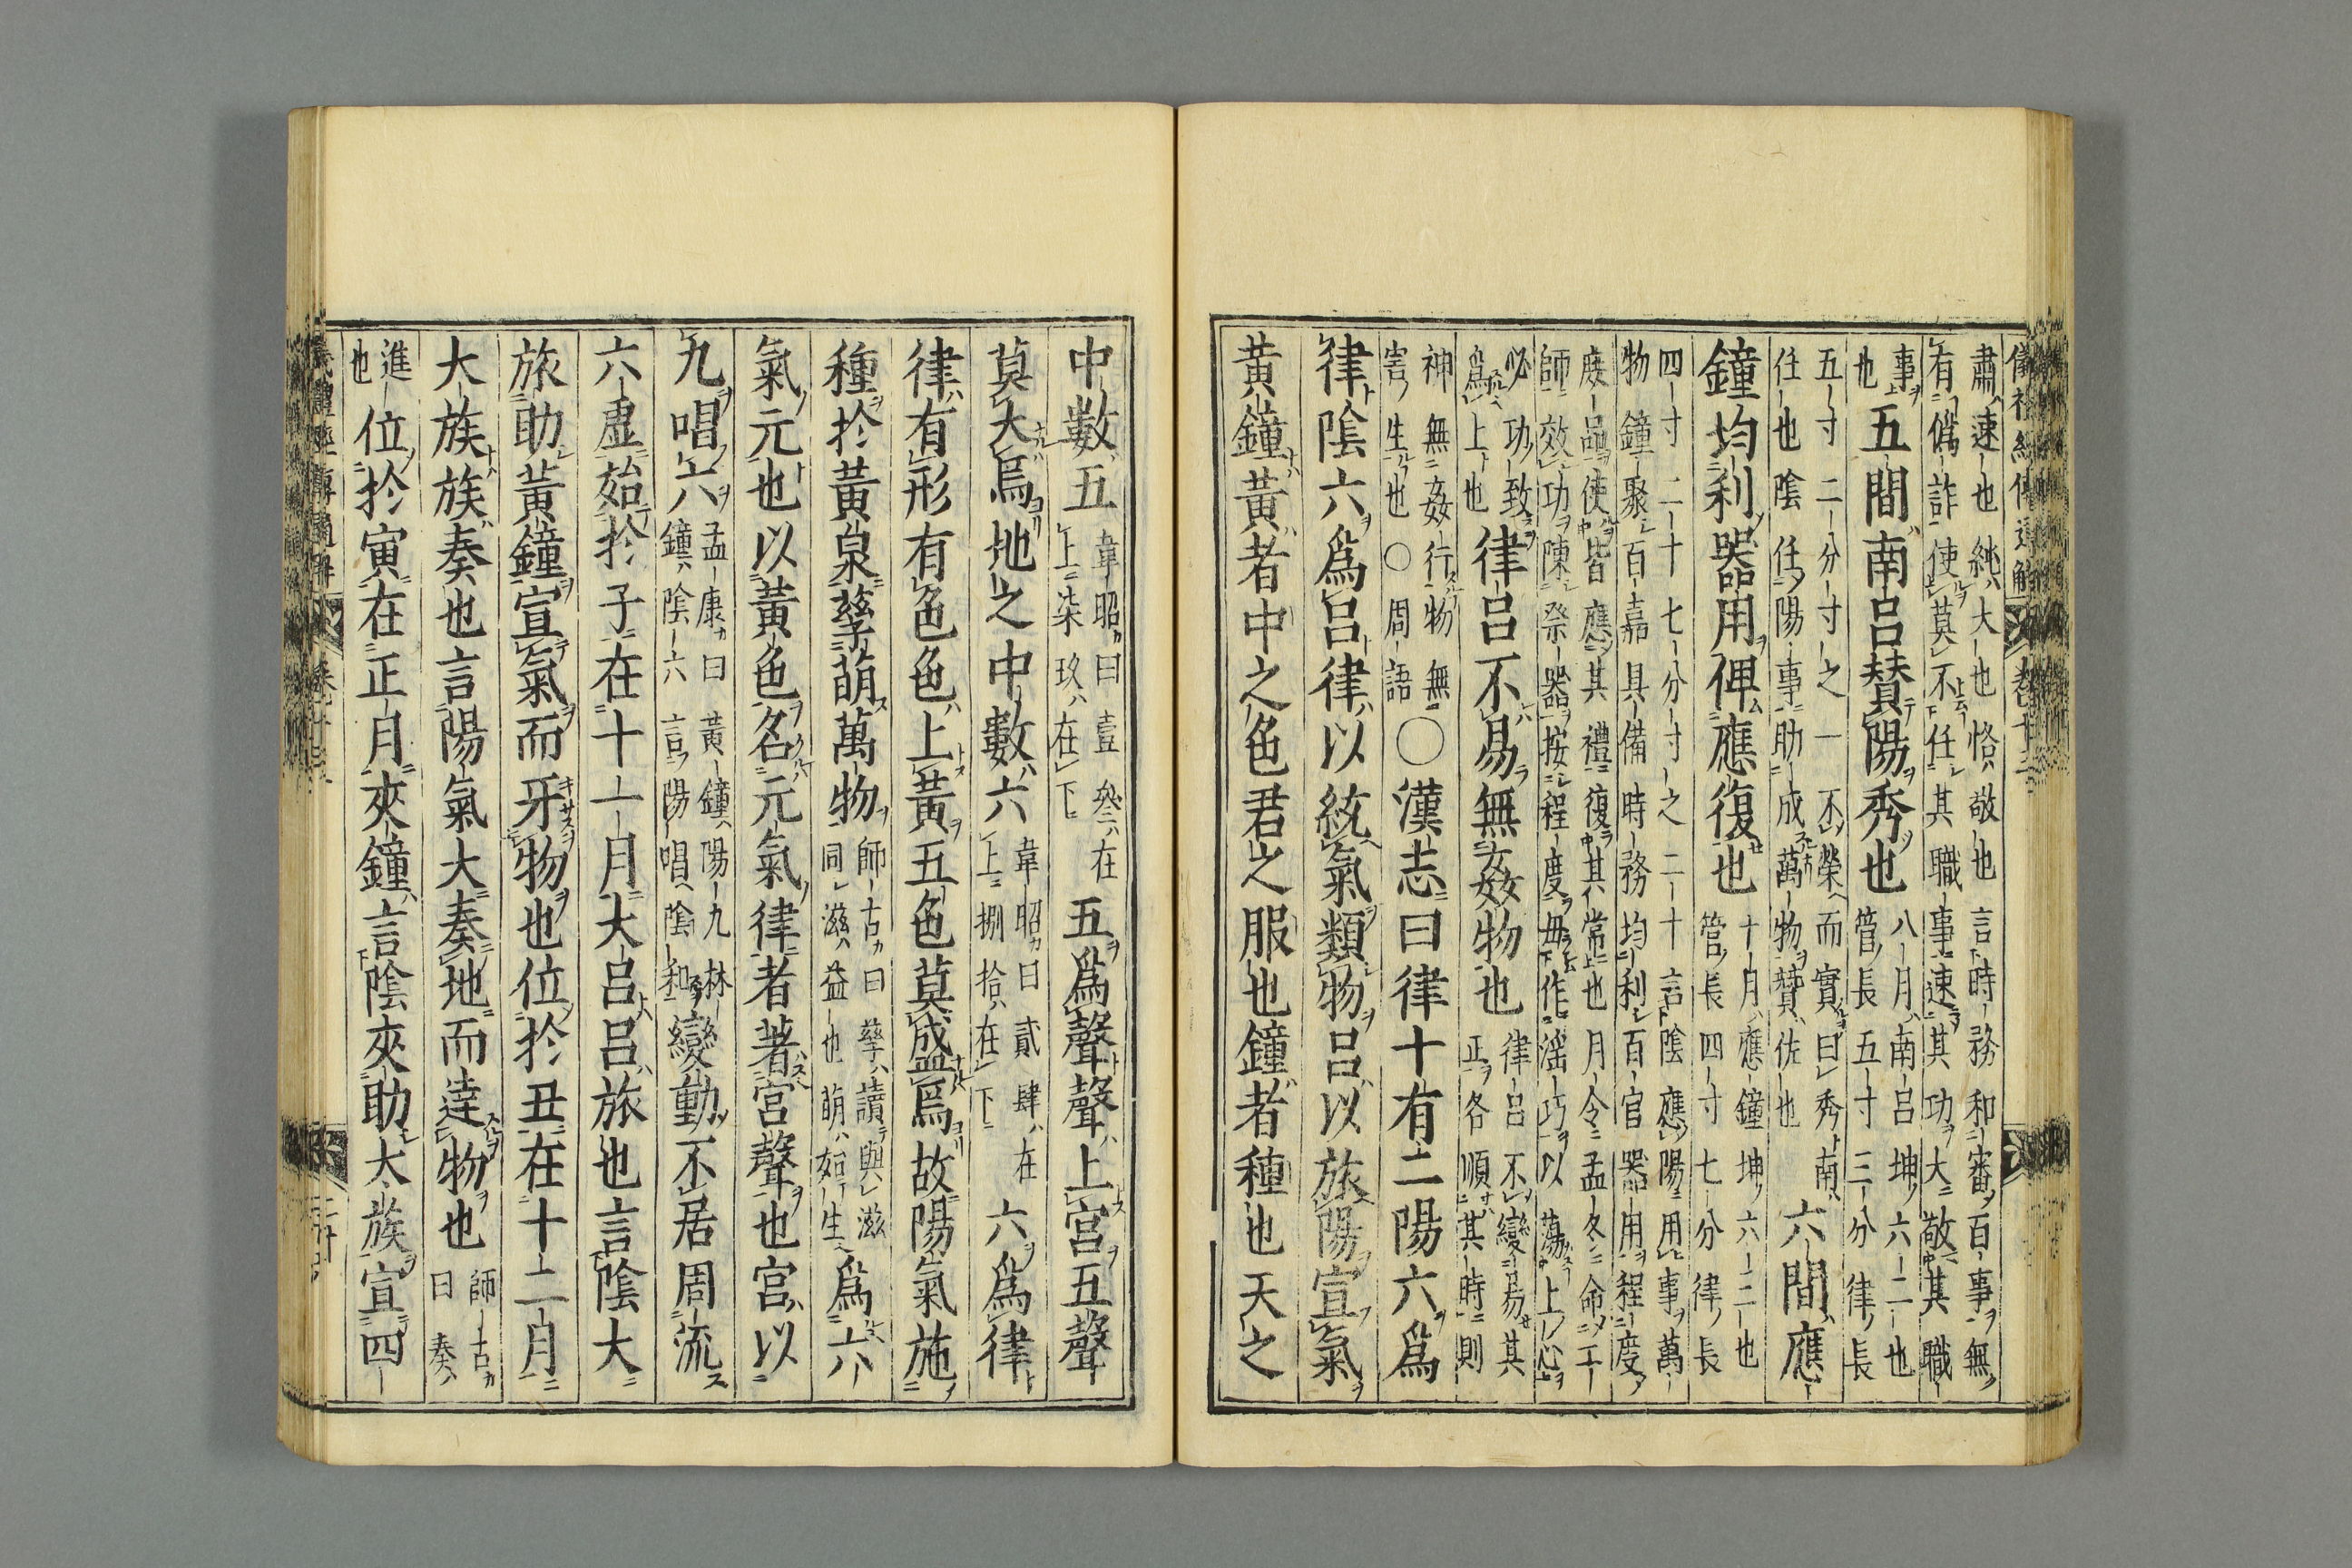 儀禮經傳通解
肅速也純大也恪敬也言時務和審百事無
有偽詐使莫不任其職事速其功大敬其職
事也五間南呂賛陽秀也八月南呂坤六二也管長五寸三分律長
五寸二分寸之一不榮而實曰秀南任也陰任陽事助成萬物賛佐也六間應
鐘均利器用俾應復也十月應鐘坤六二也管長四寸七分律長
四寸二十七分寸之二十言陰應陽用事萬
物鐘聚百嘉具備時務均利百官器用程度
庋品使皆應其禮復其常也月令孟冬命工
師效功陳祭器按程度毋作淫巧以蕩上心
必功致爲上也律呂不易無姦物也律呂不變易其正各順其時則
神無姦行物無害生也○周語○漢志曰律十有二陽六爲
律陰六爲呂律以統氣類物呂以旅陽宣氣
黃鐘黃者中之色君之服也鐘者種也天之
中數五韋昭曰壹叄在上柒玖在下五爲聲聲上宮五聲
莫大焉地之中數六韋昭曰貳肆在上捌拾在下六爲律
律有形有色色上黃五色莫盛焉故陽氣施
種於黃泉孳萌萬物師古曰孳讀與滋同滋益也萌始生爲六
氣元也以黃色名元氣律者著宮聲也宮以
九唱六孟康曰黃鐘陽九林鐘陰六言陽唱陰和變動不居周流
六虛始於子在十一月大呂呂旅也言陰大
旅助黃鐘宣氣而牙物也位於丑在十二月
大族族奏也言陽氣大奏地而達物也師古曰奏
進也位於寅在正月夾鐘言陰夾助太族宣四